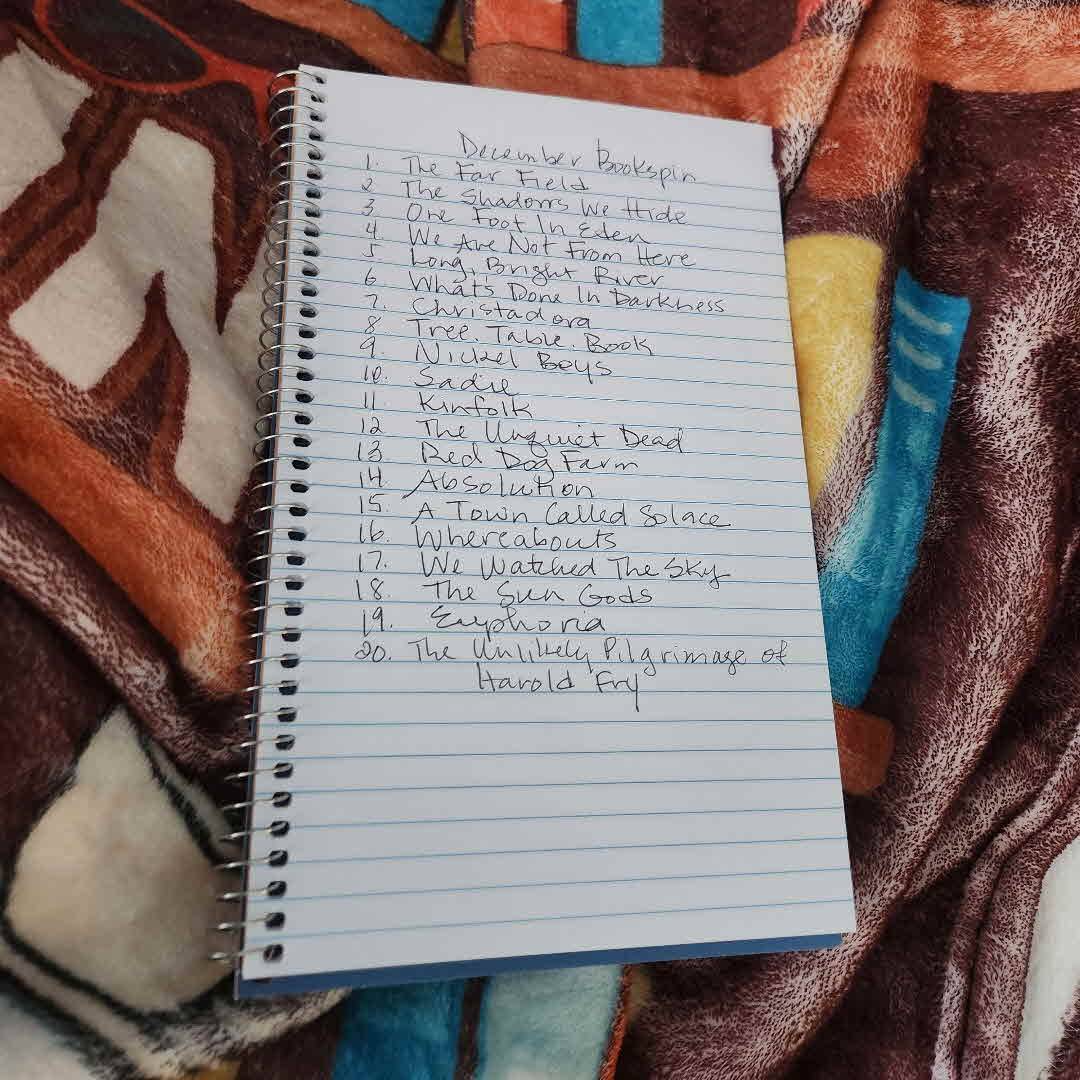 December Bookspin
1. The Far Field
2 The Shadows We Hide
3. One Foot In Eden
4 We Are Not From Here
5 Long, Bright River
6. What's Done In Darkness
7. Christadora
8. Tree. Table. Book
9. Nickel Boys
10. Sadie
11 Kinfolk
12 The Unquiet Dead
13 Red Dog Farm
14 Absolution
15. A Town Called Solace
16. Whereabouts
17. We Watched The Sky
18. The Sun Gods
19. Euphoria
20. The Unlikely Pilgrimage of
Harold Fry